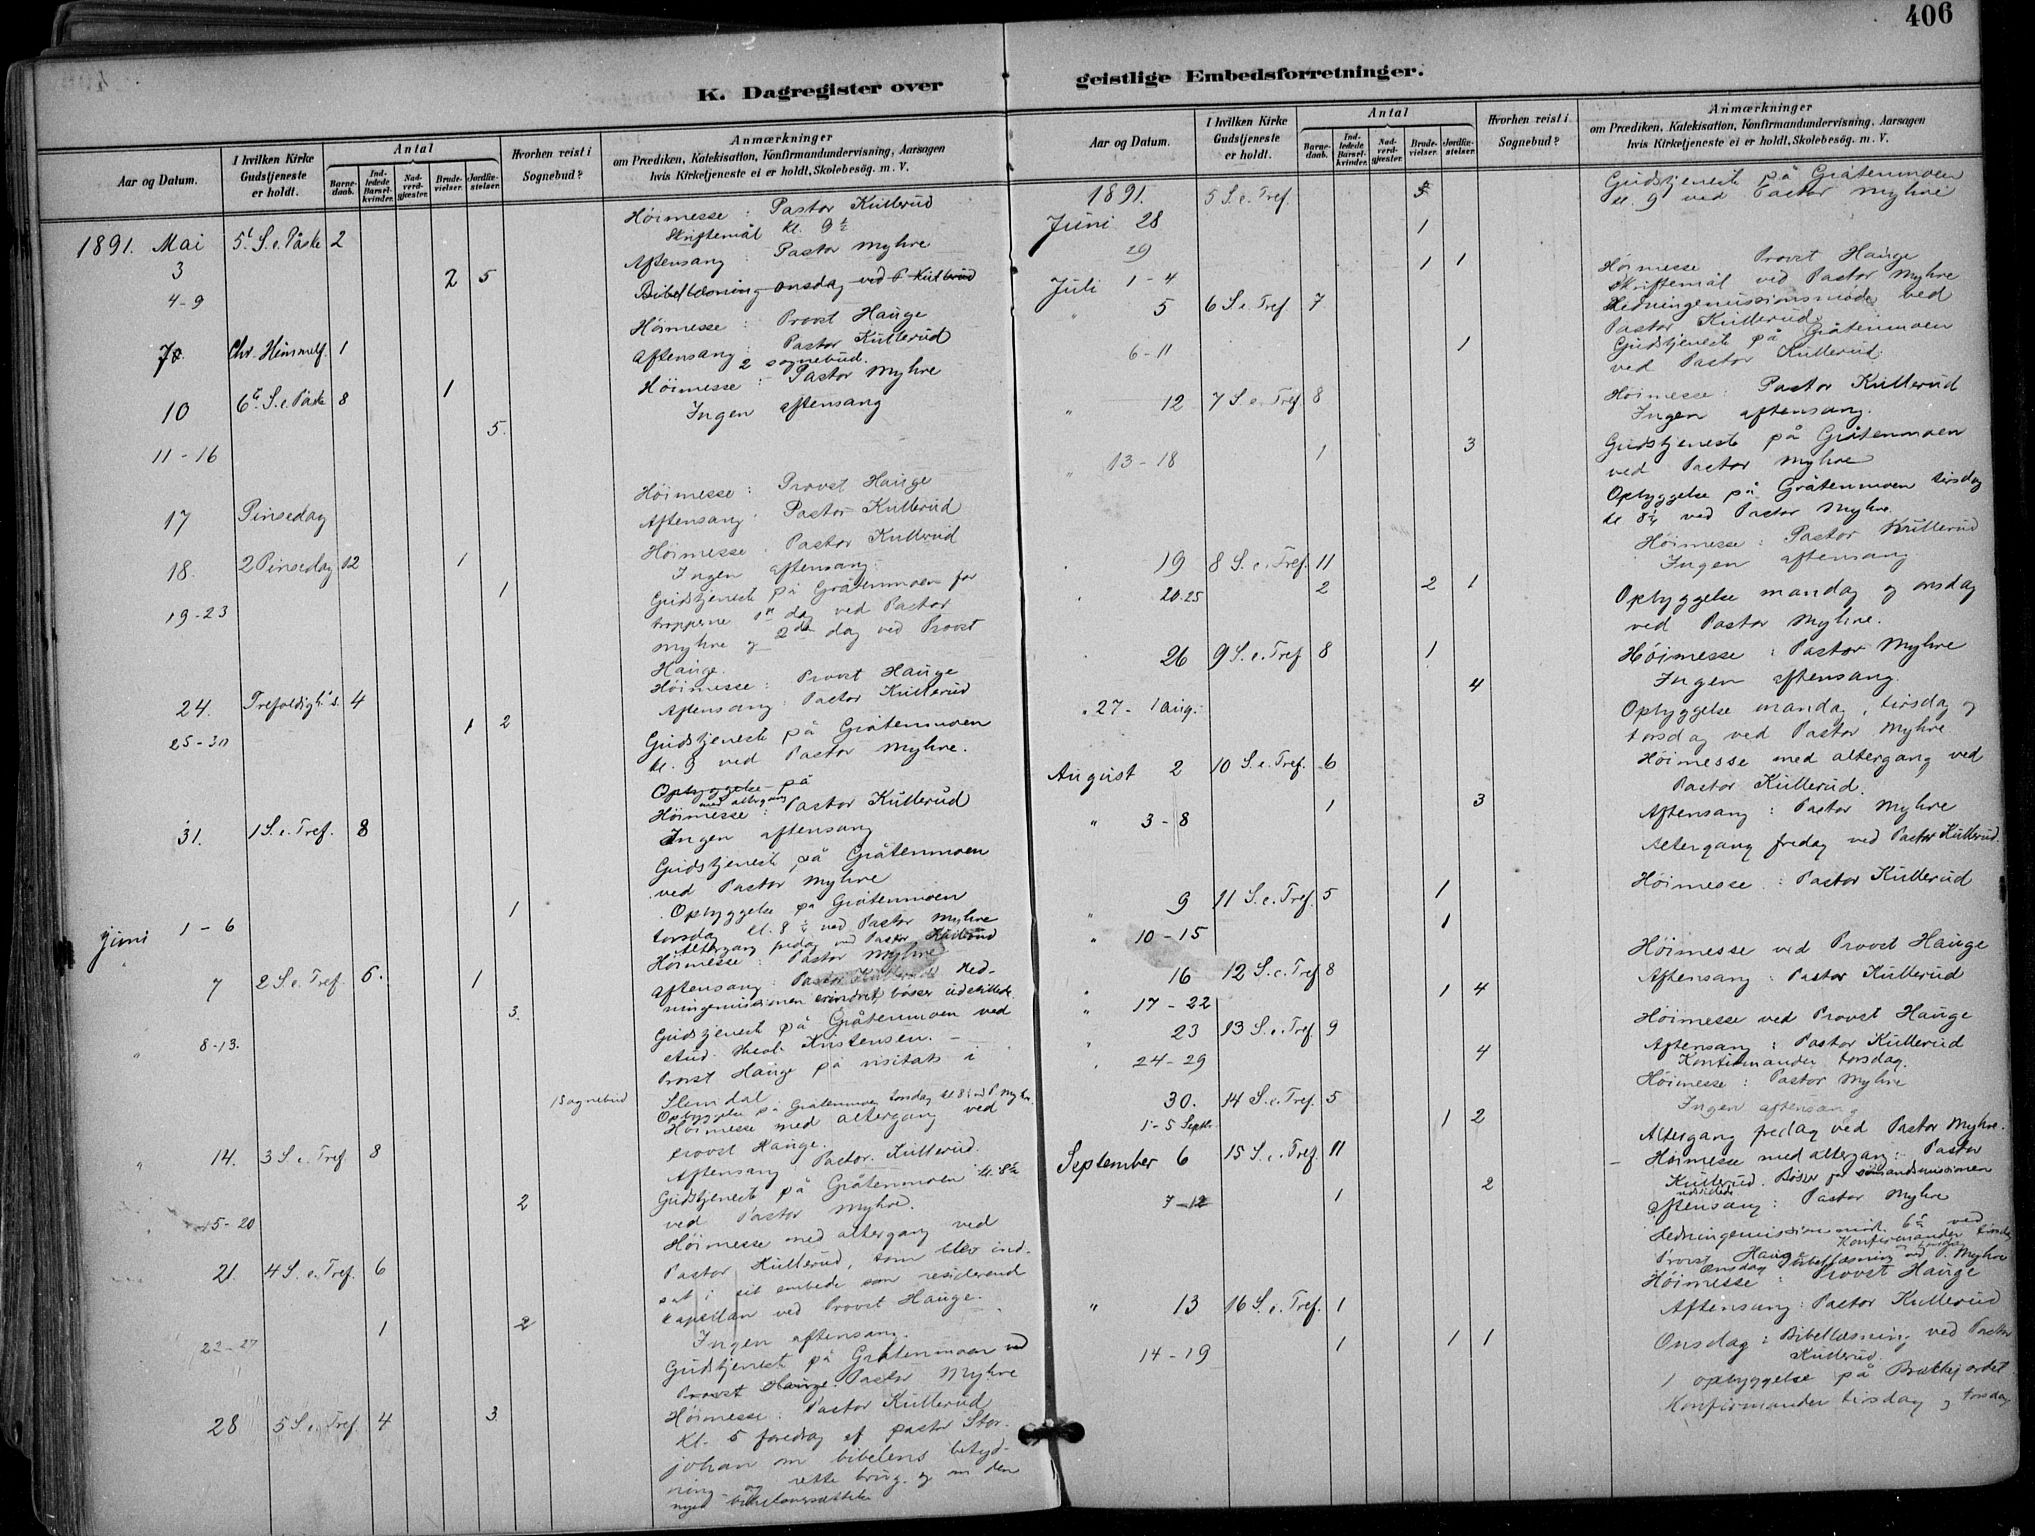 406
K. Dagregister over
Aar og Datum.
I hvilken Kirke Gudstjeneste er holdt.
Antal
Barne-daab.
Ind-ledede Barsel-kvinder.
Nad-verd-gjæster.
Brude-vielser.
Jordfæ-stelser.
Hvorhen reist i Sognebud?
Anmærkninger
om Prædiken, Katekisation, Konfirmandundervisning, Aarsagen
hvis Kirketjeneste ei er holdt, Skolebesøg. m. V.
Høimesse: Pastor Kullerud
Skriftemål kl. 9½
1891. Mai 3 5t. S. e. Påske 2
Aftensang: Pastor Myhre
4-9 2 5
Bibellæsning onsdag ved P. Kullerud
Høimesse: Provst Hauge
7 Chr. Himmelf. 1
Aftensang: Pastor Kullerud
2 sognebud.
10 6te S. e. Påske 8 1
Høimesse: Pastor Myhre
Ingen aftensang
11-16 5.
17 Pinsedag
Høimesse: Provst Hauge
Aftensang: Pastor Kullerud
18. 2 Pinsedag 12 1
Høimesse: Pastor Kullerud
Ingen aftensang.
19-23 1
Gudstjeneste på Gråtenmoen for
tropperne 1ste dag ved Pastor
Myhre og 2den dag ved Provst
Hauge.
24. Trefoldigh. s. 4
Høimesse: Provst Hauge
Aftensang: Pastor Kullerud
25-30 1 2
Gudstjeneste på Gråtenmoen
kl. 9 ved Pastor Myhre.
Opbyggelse på
31. 1 S. e. Tref. 8
med altergang
Høimesse: Pastor Kullerud
Ingen aftensang
Gudstjeneste på Gråtenmoen
ved Pastor Myhre
Juni 1-6 1
Opbyggelse på Gråtenmoen
torsdag kl. 8½ ved Pastor Myhre
Altergang fredag ved Pastor Kullerud
" 7 2 S. e. Tref. 6. 1
Høimesse: Pastor Myhre
Aftensang: Pastor Kullerud Hed-
ningemissionen erindret, bøsser udstillede
" 8-13. 3.
Gudstjeneste på Gråtenmoen ved
stud. theol. Kristensen. –
Provst Hauge på visitats i
1 Sognebud
Slemdal.
Opbyggelse på Gråtenmoen torsdag kl 8½ ved P. Myhre.
" 14. 3 S. e. Tref 8
Høimesse med altergang ved
Provst Hauge.
Aftensang Pastor Kullerud.
15-20 2
Gudstjeneste på Gråtenmoen kl. 8½
ved Pastor Myhre.
21. 4 S. e. Tref. 6
Høimesse med altergang ved
Pastor Kullerud, som blev ind-
sat i sit embede som residerende
kapellan ved Provst Hauge.
22-27 1 2
Ingen aftensang.
Gudstjeneste på Gråtenmoen ved
Provst Hauge. Pastor Myhre
28 5 S. e. Tref 4 3
Høimesse: Pastor Kullerud
Kl. 5 foredrag af pastor Stor-
johan om bibelens betyd-
ning og rette brug, og om den
nye
geistlige Embedsforretninger.
Aar og Datum.
I hvilken Kirke Gudstjeneste er holdt.
Antal
Barne-daab.
Ind-ledede Barsel-kvinder.
Nad-verd-gjæster.
Brude-vielser.
Jordfæ-stelser.
Hvorhen reist i Sognebud?
Anmærkninger
om Prædiken, Katekisation, Konfirmandundervisning, Aarsagen
hvis Kirketjeneste ei er holdt, Skolebesøg. m. V.
1891. 5 S. e. Tref.
Gudstjeneste på Gråtenmoen
kl. 9 ved Pastor Myhre
Juni 28 1
29
Juli 1-4 1 1
" 5 6 S. e. Tref 7
Høimesse Provst Hauge
Skriftemål ved Pastor Myhre
Hedningemissionsmøde ved
Pastor Kullerud.
6-11 1
Gudstjeneste på Gråtenmoen
ved Pastor Kullerud.
" 12 7 S. e. Tref 8
Høimesse: Pastor Kullerud
Ingen aftensang.
" 13-18 1 3
Gudstjeneste på Gråtenmoen
ved Pastor Myhre
Opbyggelse på Gråtenmoen tirsdag
kl 8½ ved Pastor Myhre.
19 8 S. e. Tref. 11
Høimesse: Pastor Kullerud
Ingen aftensang
20-25 2 2 1
Opbyggelse mandag og onsdag
ved Pastor Myhre.
26 9 S. e. Tref 8 1
Høimesse: Pastor Myhre
Ingen aftensang.
" 27 - 1 aug. 4
Opbyggelse mandag, tirsdag og
torsdag ved Pastor Myhre
August 2 10 S. e. Tref. 6
Høimesse med altergang ved
Pastor Kullerud.
" 3-8 1 3
Aftensang: Pastor Myhre
Altergang fredag ved Pastor Kullerud.
" 9 11 S. e. Tref. 5 1
Høimesse: Pastor Kullerud
" 10-15 1
" 16 12 S. e. Tref 8
Høimesse ved Provst Hauge
Aftensang: Pastor Kullerud
" 17-22 1 4
" 23 13 S. e. Tref. 9
Høimesse ved Provst Hauge
Aftensang: Pastor Kullerud
" 24-29 4
Konfirmander torsdag.
30. 14 S. e. Tref. 5
Høimesse: Pastor Myhre
Ingen aftensang
1-5 Septbr. 1 2
Altergang fredag ved Pastor Myhre.
September 6 15 S. e. Tref. 11
Høimesse med altergang: Pastor
Kullerud. Bøsser for sømandsmissionen
udstillede
7-12 1 2
Aftensang: Pastor Myhre
Hedningemissionsmøde ved
Konfirmander tirsdag
Provst Hauge
Onsdag Bibellæsning ved P. Myhre
" 13 16 S. e. Tref. 1
Høimesse: Provst Hauge
Aftensang: Pastor Kullerud
14-19 1 1 1
Onsdag: Bibellæsning ved Pastor
Kullerud.
1 opbyggelse på Brækkejordet
Konfirmander tirsdag og torsdag